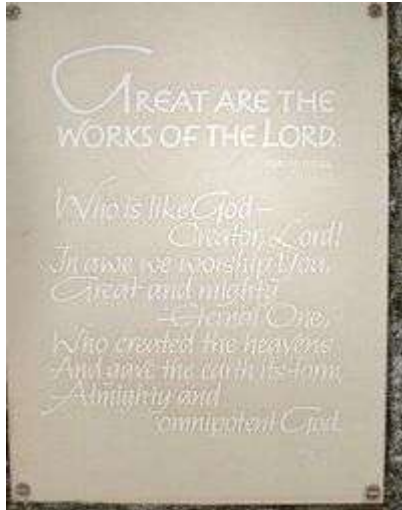 GREAT ARE THE
WORKS OF THE LORD.
Who is like God–
Creator, Lord!
In awe we worship You,
Great and mighty
–Eternal One,
Who created the heavens
And gave the earth its form,
Almighty and
omnipotent God.